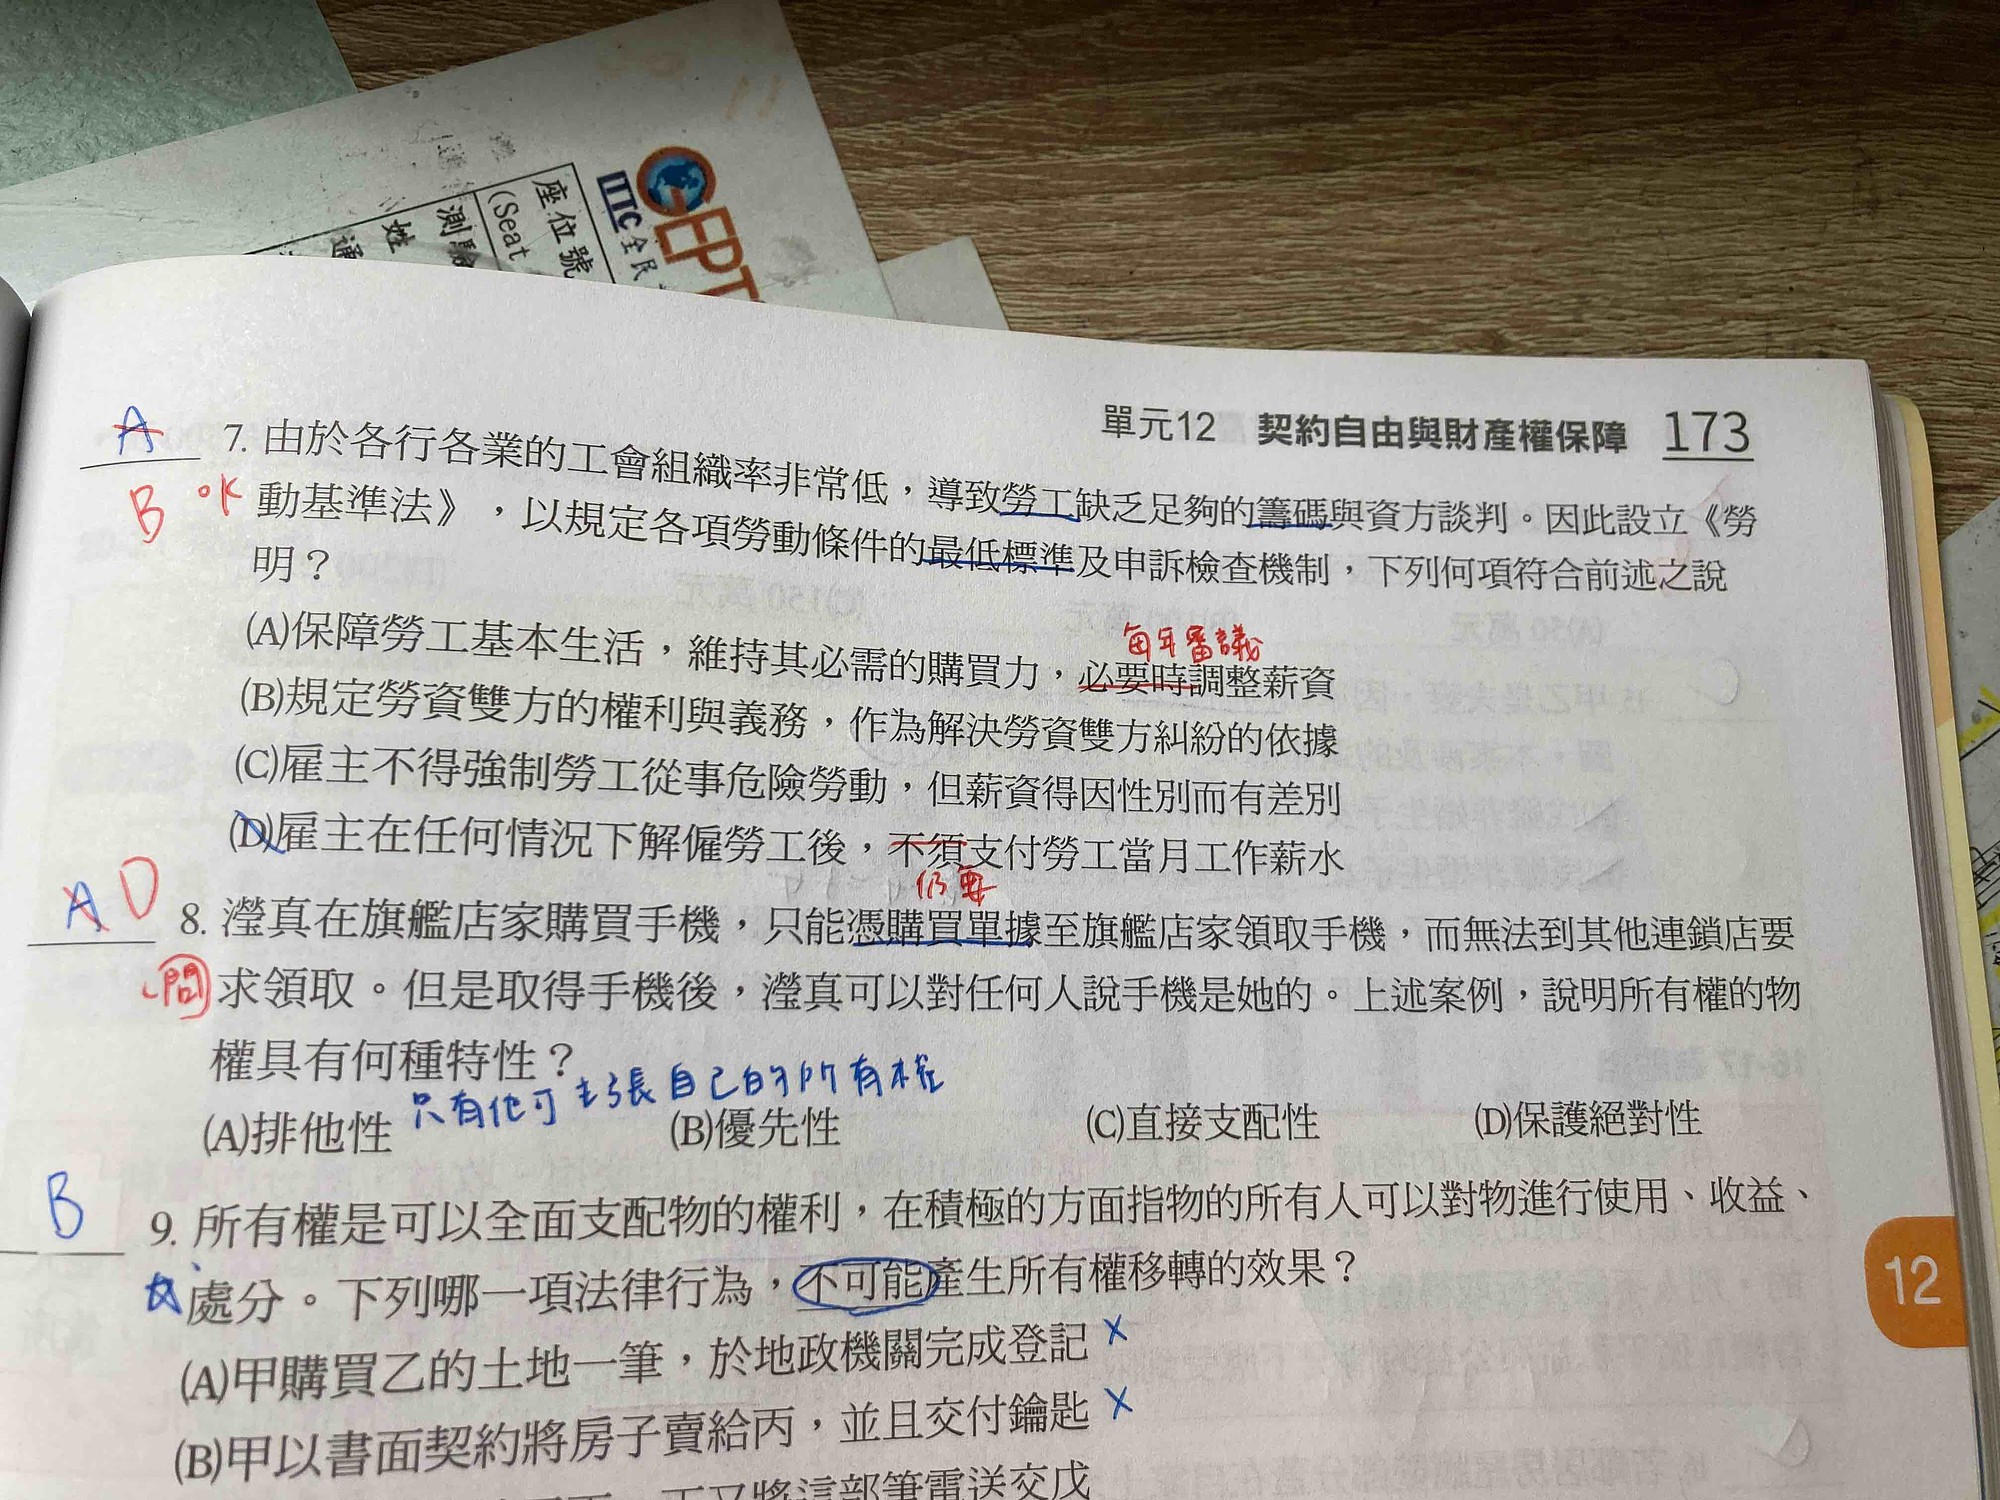 GEPT
LTTC 全民
座位號
(Seat
測驗
姓
通
單元12 契約自由與財產權保障 173
A
B OK
7. 由於各行各業的工會組織率非常低，導致勞工缺乏足夠的籌碼與資方談判。因此設立《勞
動基準法》，以規定各項勞動條件的最低標準及申訴檢查機制，下列何項符合前述之說
明？
每年審議
(A)保障勞工基本生活，維持其必需的購買力，必要時調整薪資
(B)規定勞資雙方的權利與義務，作為解決勞資雙方糾紛的依據
(C)雇主不得強制勞工從事危險勞動，但薪資得因性別而有差別
(D)雇主在任何情況下解僱勞工後，不須支付勞工當月工作薪水
仍要
A D
問
8. 瀅真在旗艦店家購買手機，只能憑購買單據至旗艦店家領取手機，而無法到其他連鎖店要
求領取。但是取得手機後，瀅真可以對任何人說手機是她的。上述案例，說明所有權的物
權具有何種特性？
只有他可主張自己的所有權
(A)排他性 (B)優先性 (C)直接支配性 (D)保護絕對性
B
9. 所有權是可以全面支配物的權利，在積極的方面指物的所有人可以對物進行使用、收益、
處分。下列哪一項法律行為，不可能產生所有權移轉的效果？
(A)甲購買乙的土地一筆，於地政機關完成登記 ×
(B)甲以書面契約將房子賣給丙，並且交付鑰匙 ×
丁又將這部筆電送交戊
12